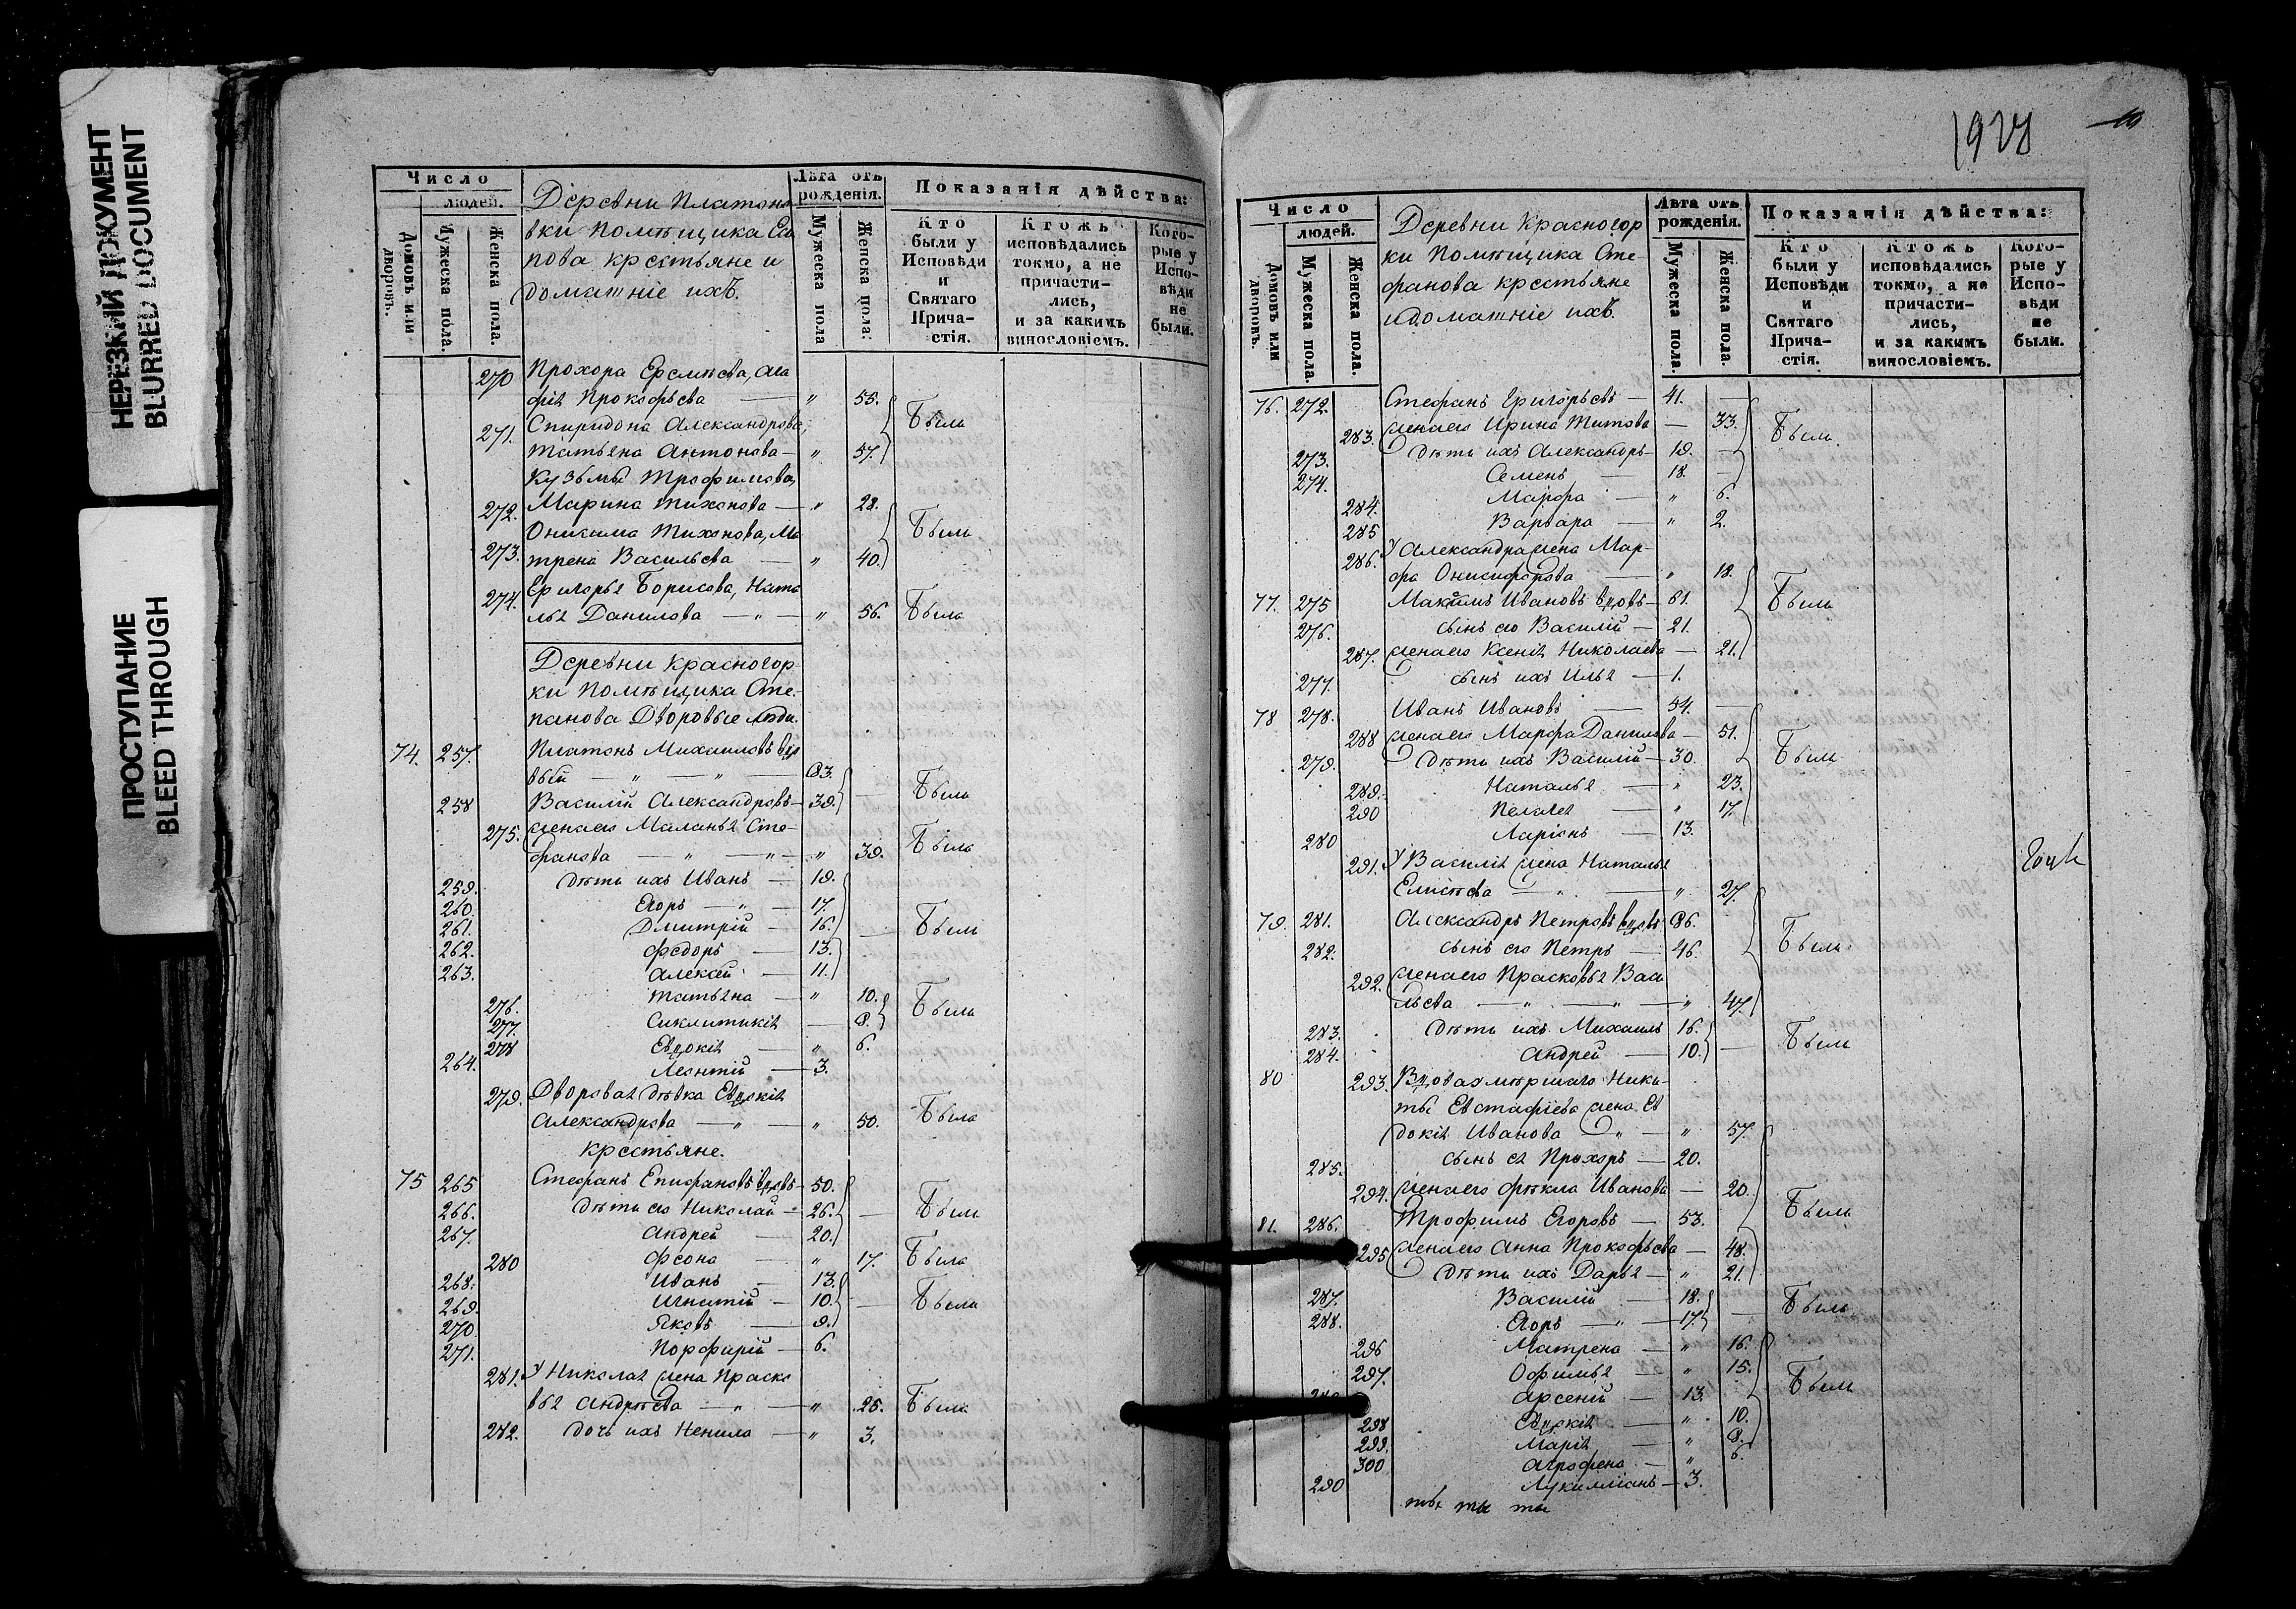 НЕРЕЗКИЙ ДОКУМЕНТ
BLURRED DOCUMENT
ПРОСТУПАНИЕ
BLEED THROUGH
Число
людей.
Домовъ или дворовъ.
Мужеска пола.
Женска пола.
Деревни Платоно
вки Помѣщика Еса
пова крестьяне и
домашніе ихъ.
Лѣта отъ рожденія.
Мужеска пола
Женска пола:
Показанія дѣйства:
Кто были у Исповѣди и Святаго Прича- стія.
Ктожъ исповѣдались токмо, а не причасти- лись, и за какимъ винословіемъ.
Кото- рые у Испо- вѣди не были.
270 Прохора Еремѣева, Ага
фія Прокофьева — " 55.
271. Спиридона Александрова,
Татьяна Антонова — " 57. Были
Кузьмы Трофимова,
272. Марина Тихонова — " 28.
Онисима Тихонова, Ма
273. трена Васильева — " 40. Были
274. Григорья Борисова, Ната
лья Данилова — " — " 56. Была
Деревни Красногор-
ки Помѣщика Сте-
панова Дворовые люди.
74. 257. Платонъ Михаиловъ вдо
вый — " — " — 83.
258 Василій Александровъ — 39. Были
275. жена его Маланья Сте-
фанова — " — " — " 39. Была
259. дѣти ихъ Иванъ — 19.
260. Егоръ — " — 17.
261. Дмитрій — 16. Были
262. Федоръ — 13.
263. Алексѣй — 11.
276. Татьяна — " 10.
277. Сиклитикія — 8. Были
278 Евдокія — " 6.
264. Леонтій — 3.
279. Дворовая дѣвка Евдокія
Александрова — " — " 50. Была
Крестьяне.
75 265 Стефанъ Епифановъ вдовъ — 50.
266. дѣти его Николай — 26. Были
267. Андрей — 20.
280 Феона — " 17. Была
268. Иванъ — 13.
269. Игнатій — 10. Были
270. Яковъ — 9.
271. Порфирій — 6.
281. У Николая жена Праско
вья Андрѣева — " — " 25. Была
282. дочь ихъ Ненила — " 3.
1928
Число
людей.
Домовъ или дворовъ.
Мужеска пола.
Женска пола.
Деревни Красногор
ки Помѣщика Сте-
фанова крестьяне
и домашніе ихъ.
Лѣта отъ рожденія.
Мужеска пола.
Женска пола.
Показанія дѣйства:
Кто были у Исповѣди и Святаго Прича- стія.
Ктожъ исповѣдались токмо, а не причасти- лись, и за какимъ винословіемъ.
Кото- рые у Испо- вѣди не были.
76. 272. Стефанъ Григорьевъ — 41. —
283. жена его Ирина Титова — 33. Были
273. дѣти ихъ Александръ — 19. —
274. Семенъ — 18. —
284. Марфа — " 6.
285 Варвара — " 2.
286. У Александра жена Мар-
фа Онисифорова — " 18.
77. 275 Максимъ Ивановъ вдовъ — 61. Были
276. сынъ его Василій — 21.
287. жена его Ксенія Николаева — 21.
277. сынъ ихъ Илья — 1.
78 278. Иванъ Ивановъ — 54. —
288 жена его Марфа Данилова — 51.
279. дѣти ихъ Василій — 30. Были
289. Наталья — " 23.
290 Пелагея — " 17.
280 Ларіонъ — 13.
291. У Василія жена Наталья
Елисѣева — " — " 27.
79. 281. Александръ Петровъ вдовъ 86.
282. сынъ его Петръ — 46. Были
292. жена его Прасковья Васи
льева — " — " — " 47.
283. дѣти ихъ Михаилъ 16.
284. Андрей — 10. — Были
80 293. Вдова умѣршаго Ники-
ты Евстафіева жена Ев
докія Иванова — " — " 57.
285. сынъ ея Прохоръ — 20.
294. жена его Фѣкла Иванова — 20. Были
81. 286. Трофимъ Егоровъ — 53.
295 жена его Анна Прокофьева — 48.
дѣти ихъ Дарья — " 21.
287. Василій — 18.
288. Егоръ — " — 17. — Были
296 Матрена — " 16.
297. Офимья — " 15.
Арсеній — 13. Были
298 Евдокія — " 10.
299. Марія — " 8.
300 Агрофена — " 6.
290 Лукилліанъ — 3.
ты ты ты